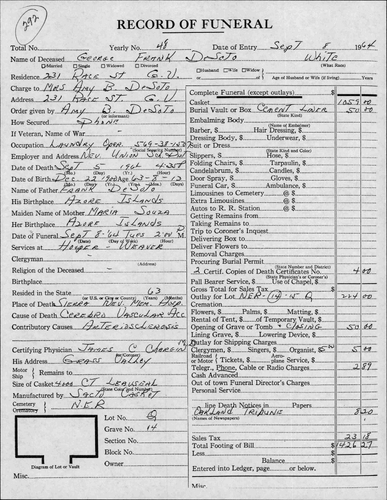 292
RECORD OF FUNERAL
Total No. Yearly No. 48 Date of Entry Sept 8 1964
Name of Deceased George Frank DeSoto White
Married Single Widowed Divorced Husband Wife Widow of (What Race)
Residence 231 Race St G.V. Age of Husband or Wife (if living) Years
Charge to Mrs Amy B. DeSoto
Address 231 Race St. G.V.
Order given by Amy B. DeSoto
(or informant)
How Secured Phone
If Veteran, Name of War
Occupation Laundry Oper.
(Social Security Number)
Employer and Address Nev. Union
Date of Death Sept 5 1964
Date of Birth Dec. 22
Name of Father Frank DeSoto
His Birthplace Azore Islands
Maiden Name of Mother Maria Souza
Her Birthplace Azore Islands
Date of Funeral Sept 8-64 Tues 2:00 P.M.
Services at Hooper-Weaver
Clergyman
(Address)
Religion of the Deceased
Birthplace
Resided in the State 63
(or U.S. or City or County) (Years) (Months)
Place of Death Sierra Nev. Mem. Hosp.
Cause of Death Cerebro Vascular Acc
Contributory Causes Arteriosclerosis
Certifying Physician James C
His Address Grass Valley
Motor Ship Remains to
Size of Casket
Manufactured by Sacto Casket
Cemetery Crematory N.E.R.
Lot No. Q
Grave No. 14
Section No.
Block No.
Owner
Diagram of Lot or Vault
Misc.
Complete Funeral (except outlays) $
Casket 1059 00
Burial Vault or Box Cement Liner 50 00
(State Kind)
Embalming Body
(Name of Embalmer)
Barber, $ Hair Dressing, $
Dressing Body, $ Underwear, $
Suit or Dress
(State Kind and Color)
Slippers, $ Hose, $
Folding Chairs, $ Tarpaulin, $
Candelabrum, $ Candles, $
Door Spray, $ Gloves, $
Funeral Car, $ Ambulance, $
Limousines to Cemetery @ $
Extra Limousines @ $
Autos to R. R. Station @ $
Getting Remains from
Taking Remains to
Trip to Coroner's Inquest
Delivering Box to
Deliver Flowers to
Removal Charges
Procuring Burial Permit
(State Number and District)
2 Certif. Copies of Death Certificates No. 4 00
(State Physician's or Coroner's)
Pall Bearer Service, $ Use of Chapel, $
Gross Total for Sales Tax $
Outlay for Lot NER-14 - Q 224 00
(State Number and District)
Flowers, $ Palms, $ Matting, $
Rental of Tent, $ of Temporary Vault, $
Opening of Grave or Tomb + Closing 50 00
Lining Grave, $ Lowering Device, $
Outlay for Shipping Charges
Clergyman, $ Singers, $ Organist, $ 5 00
Railroad or Motor Tickets, $ Aeroplane Service, $
Telegr., Phone, Cable or Radio Charges 2 89
Cash Advanced
Out of town Funeral Director's Charges
Personal Service
line Death Notices in Papers
Oakland Tribune 8 20
(Names of Newspapers)
Sales Tax 23 18
Total Footing of Bill $ 1426 27
Less
Balance $
Entered into Ledger, page or below.
Misc.